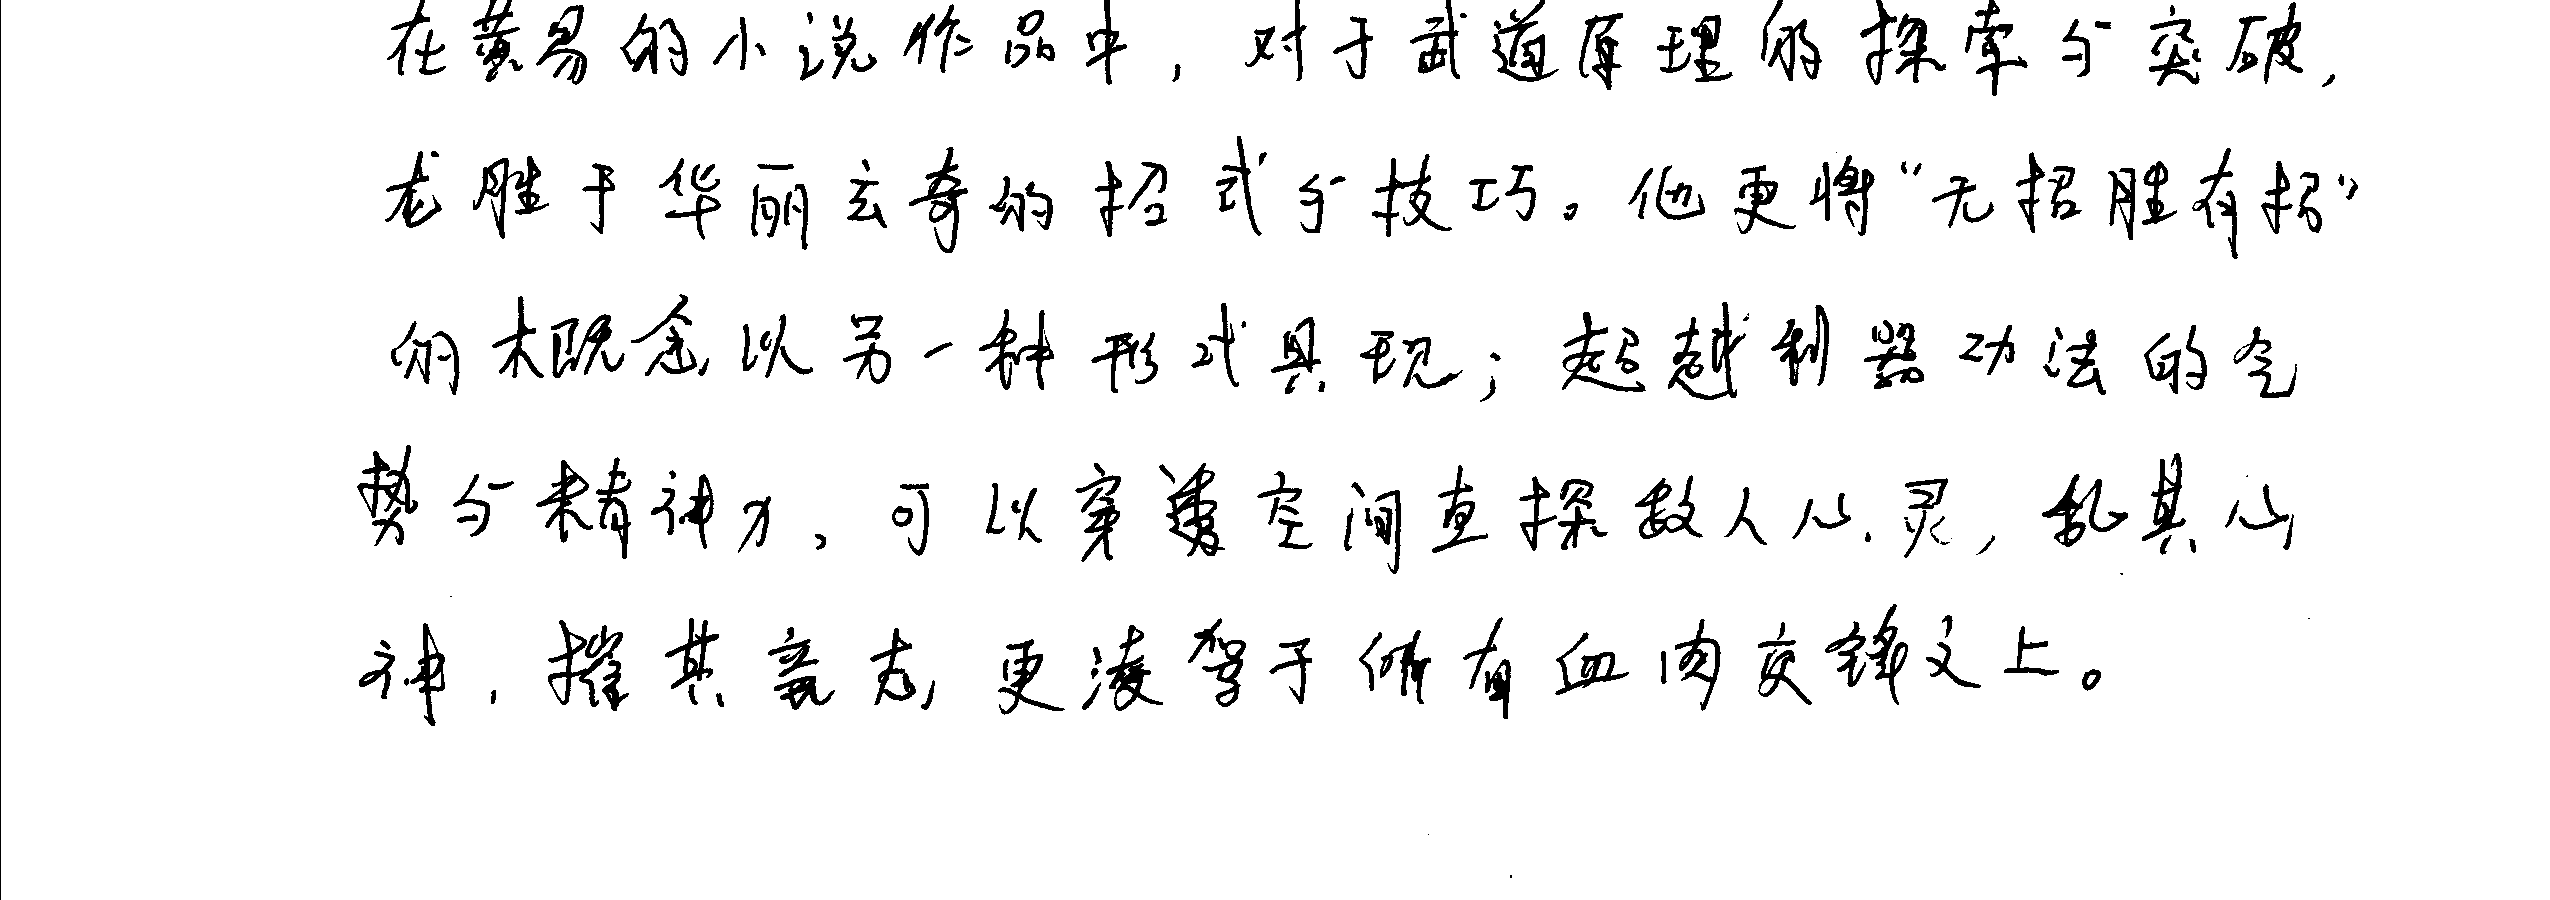 在黄易的小说作品中，对于武道原理的探索与突破，
尤胜于华丽玄奇的招式与技巧。他更将“无招胜有招”
的概念以另一种形式具现；超越利器功法的气
势与精神力，可以穿透空间直探敌人心灵，乱其心
神，摧其意志，更凌驾于所有血肉交锋之上。